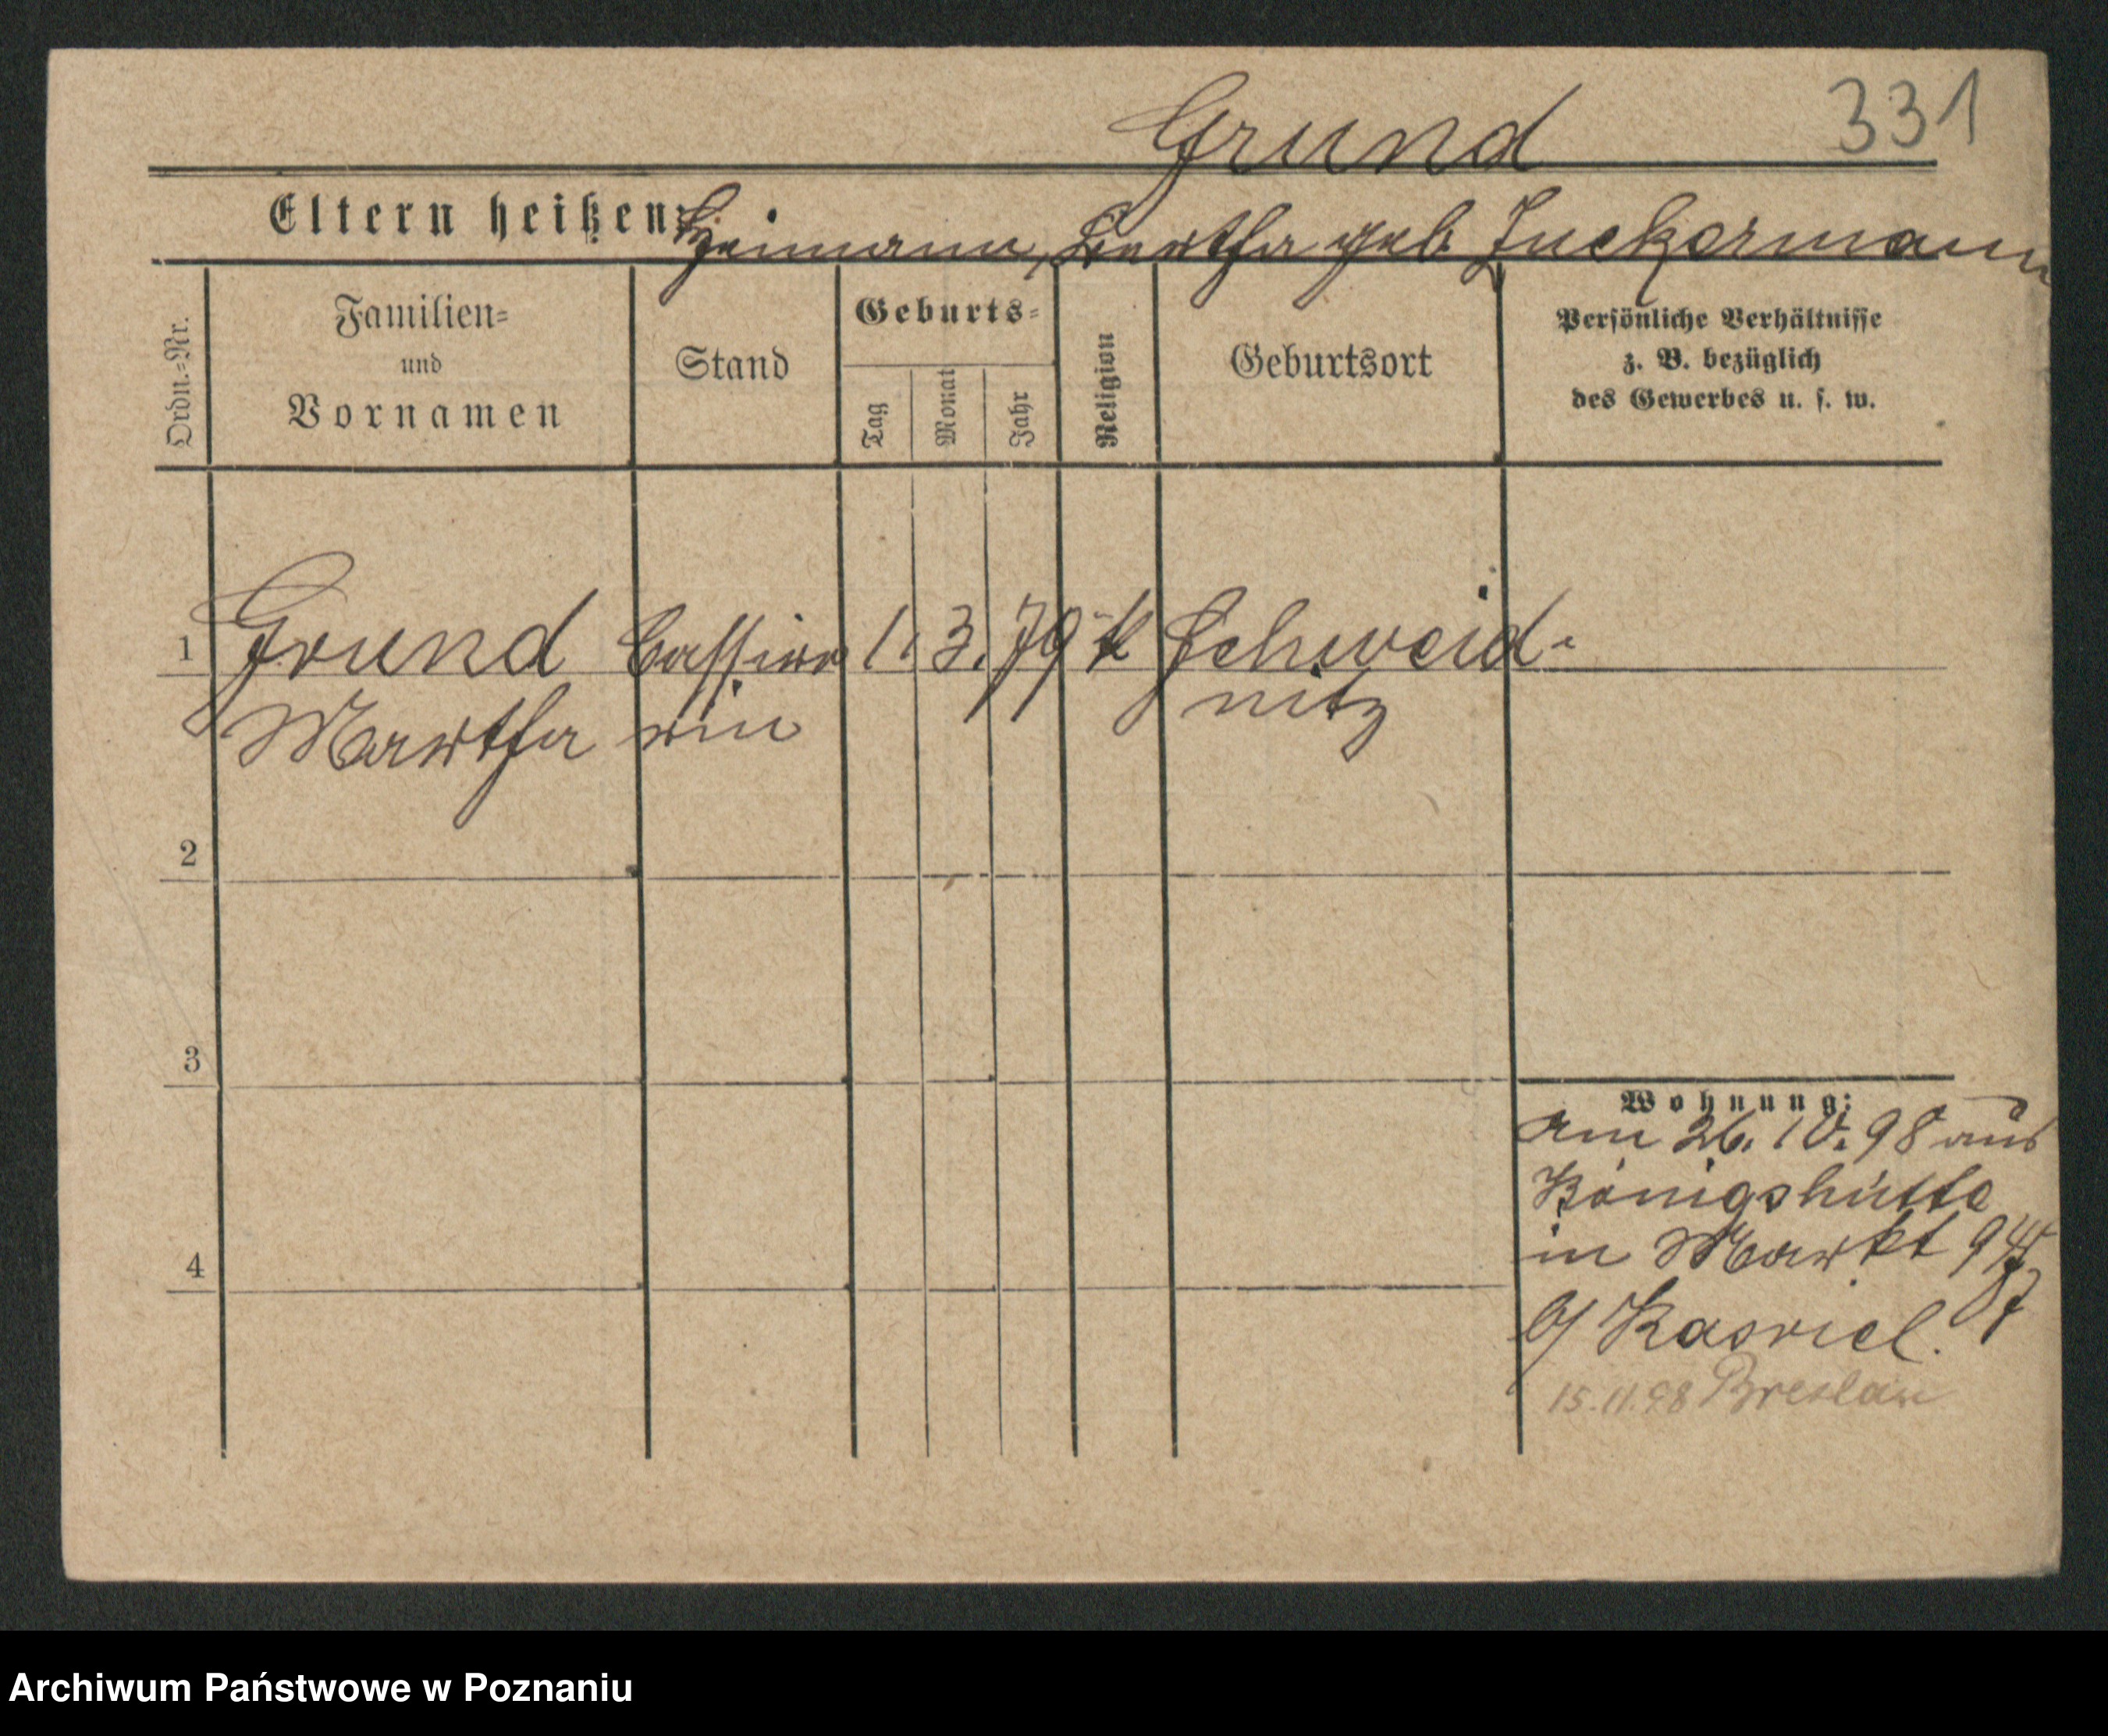 Grund
331
Eltern heißen: Heimann, Bertha geb. Zuckermann
Ordn.=Nr.
Familien=
und
Vornamen
Stand
Geburts=
Tag
Monat
Jahr
Religion
Geburtsort
Persönliche Verhältnisse
z. B. bezüglich
des Gewerbes u. s. w.
1 Grund Cassire 1. 3. 79 k Schweid-
Martha rin nitz
2
3
4
Wohnung:
am 26. 10. 98 aus
Königshütte
in Markt 94
b/ Kasriel.
15.11.98 Breslau
Archiwum Państwowe w Poznaniu